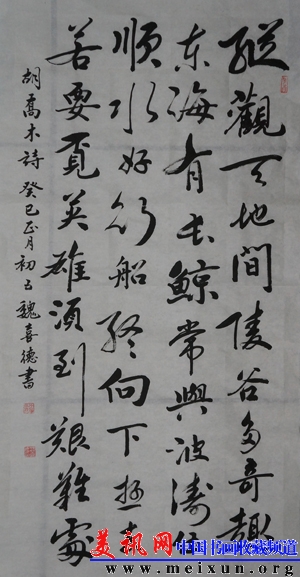 縱觀天地間陵谷多奇趣
东海有长鲸常與波涛
順水好行船終向下
若要覓英雄须到艱難處
胡喬木詩 癸巳正月初五 魏喜德書
美讯网 中国书画收藏频道
www.meixun.org